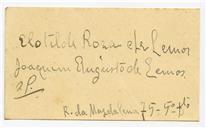 Clotilde Roza de Lemos
Joaquim Augusto de Lemos
R. da Magdalena 75-5º